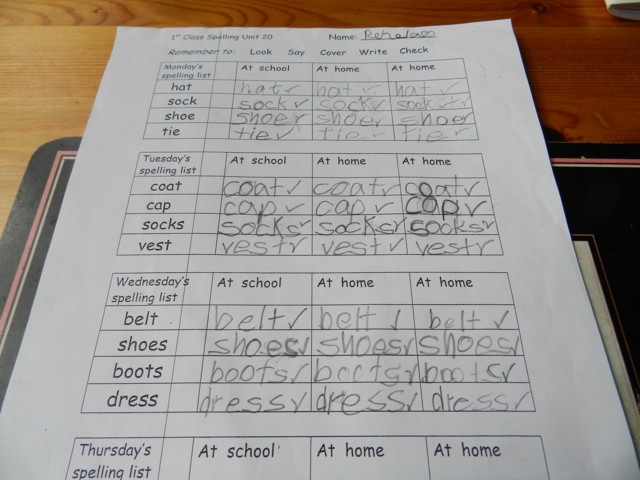 1st Class Spelling Unit 20 Name:
Remember to: Look Say Cover Write Check
Monday's spelling list At school At home At home
hat hat hat hat
sock sock sock sock
shoe shoe shoe shoe
tie tie tie tie
Tuesday's spelling list At school At home At home
coat coat coat coat
cap cap cap cap
socks socks socks socks
vest vest vest vest
Wednesday's spelling list At school At home At home
belt belt belt belt
shoes shoes shoes shoes
boots boots boots boots
dress dress dress dress
Thursday's spelling list At school At home At home